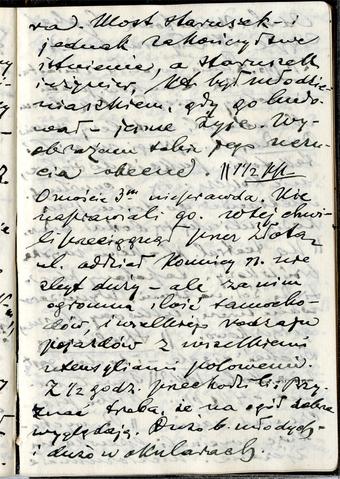 wa). Most staruszek - i
jednak zakończył swe
istnienie, a staruszek
inżynier, który był młodzie-
niaszkiem, gdy go budo-
wał - jeszcze żyje. Wy-
obrażam sobie jego uczu-
cia obecne. ||
O moście 3m nieprawda. Nie
naprawiali go. W tej chwi-
li przeciągnął przez Złotą
ul. oddział konnicy n. nie
zbyt duży - ale za nim
ogromna ilość samocho-
dów, i wszelkiego rodzaju
pojazdów z wszelkiemi
utensyliami polowemi.
Z 1/2 godz. przechodzili. Przy-
znać trzeba, że na ogół dobrze
wyglądają. Dużo b. młodych -
i dużo w okularach.